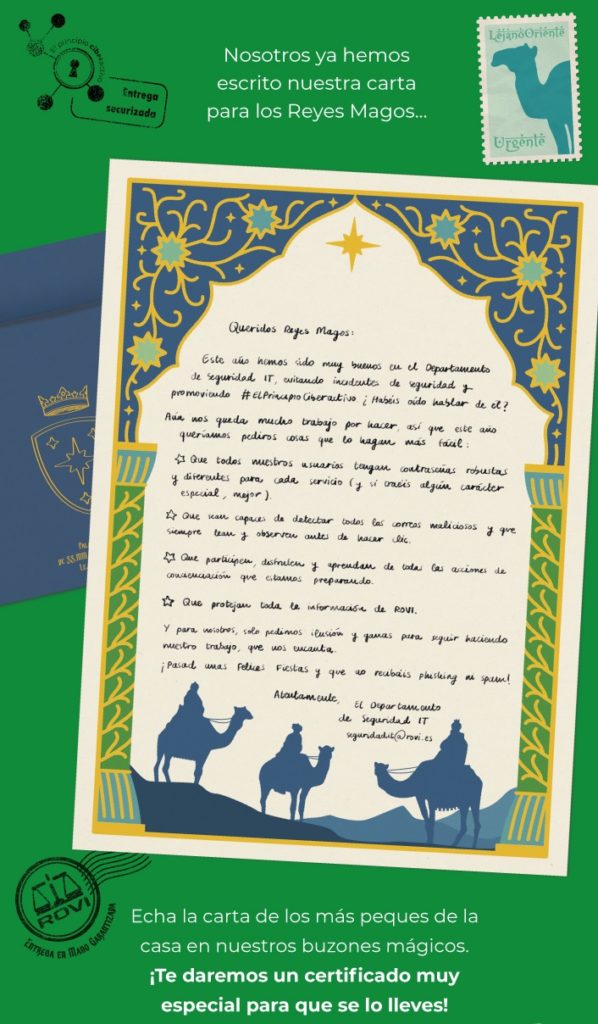 El principio ciberactivo
Entrega
securizada
Nosotros ya hemos
escrito nuestra carta
para los Reyes Magos...
LejanoOriente
Urgente
Queridos Reyes Magos:
Este año hemos sido muy buenos en el Departamento
de Seguridad IT, evitando incidentes de seguridad y
promoviendo #ElPrincipioCiberactivo ¿Habéis oído hablar de él?
Aún nos queda mucho trabajo por hacer, así que este año
queríamos pediros cosas que lo hagan más fácil:
Que todos nuestros usuarios tengan contraseñas robustas
y diferentes para cada servicio (y si traéis algún carácter
especial, mejor).
Que sean capaces de detectar todos los correos maliciosos y que
siempre lean y observen antes de hacer clic.
Que participen, disfruten y aprendan de todas las acciones de
concienciación que estamos preparando.
Que protejan toda la información de ROVI.
Y para nosotros, solo pedimos ilusión y ganas para seguir haciendo
nuestro trabajo, que nos encanta.
¡Pasad unas Felices Fiestas y que no recibáis phishing ni spam!
Atentamente,
El Departamento
de Seguridad IT
seguridadit@rovi.es
ROVI
Entrega en Mano Garantizada
Echa la carta de los más peques de la
casa en nuestros buzones mágicos.
¡Te daremos un certificado muy
especial para que se lo lleves!